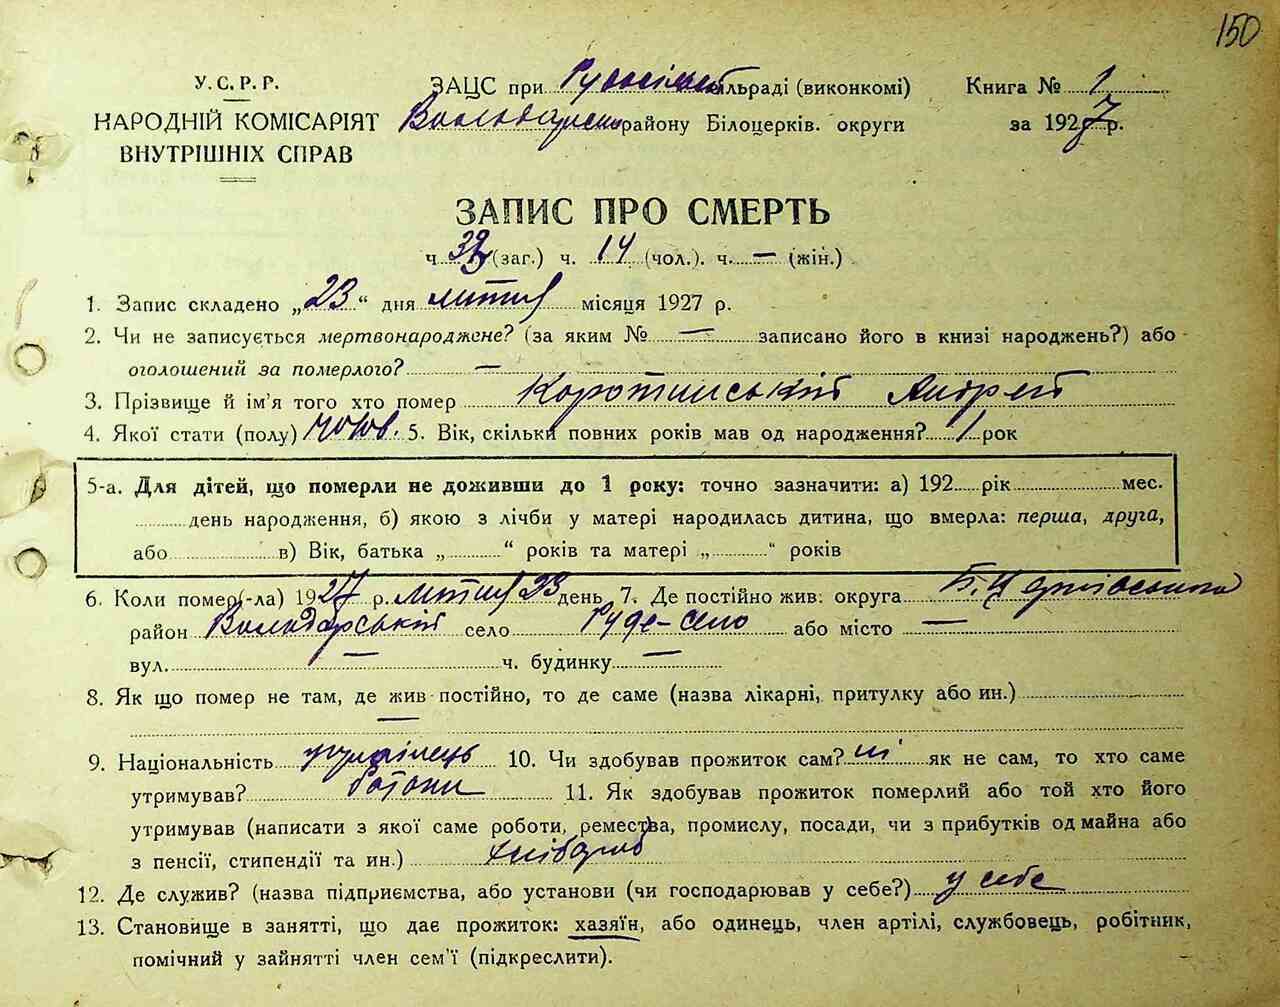 150
У.С.Р.Р.
НАРОДНІЙ КОМІСАРІЯТ
ВНУТРІШНІХ СПРАВ
ЗАЦС при Рудосільс. сільраді (виконкомі)
Володарськ. району Білоцерків. округи
Книга № 1
за 1927 р.
ЗАПИС ПРО СМЕРТЬ
ч. (заг.) ч. 14 (чол.). ч. — (жін.)
1. Запис складено „23“ дня лютня місяця 1927 р.
2. Чи не записується мертвонароджене? (за яким № — записано його в книзі народжень?) або
оголошений за померлого? —
3. Прізвище й ім'я того хто помер Коротинський Андрей
4. Якої стати (полу) чолов. 5. Вік, скільки повних років мав од народження? 1 рок
5-а. Для дітей, що померли не доживши до 1 року: точно зазначити: а) 192 рік мес.
день народження, б) якою з лічби у матері народилась дитина, що вмерла: перша, друга,
або в) Вік, батька „ “ років та матері „ “ років
6. Коли помер(-ла) 1927 р. лютня 23 день 7. Де постійно жив: округа Б. Церківського
район Володарський село Руде-село або місто —
вул. — ч. будинку —
8. Як що помер не там, де жив постійно, то де саме (назва лікарні, притулку або ин.)
—
9. Національність українець 10. Чи здобував прожиток сам? ні як не сам, то хто саме
утримував? батьки 11. Як здобував прожиток померлий або той хто його
утримував (написати з якої саме роботи, ремества, промислу, посади, чи з прибутків од майна або
з пенсії, стипендії та ин.) хлібороб
12. Де служив? (назва підприємства, або установи (чи господарював у себе?) у себе
13. Становище в занятті, що дає прожиток: хазяїн, або одинець, член артілі, службовець, робітник,
помічний у зайнятті член сем'ї (підкреслити).